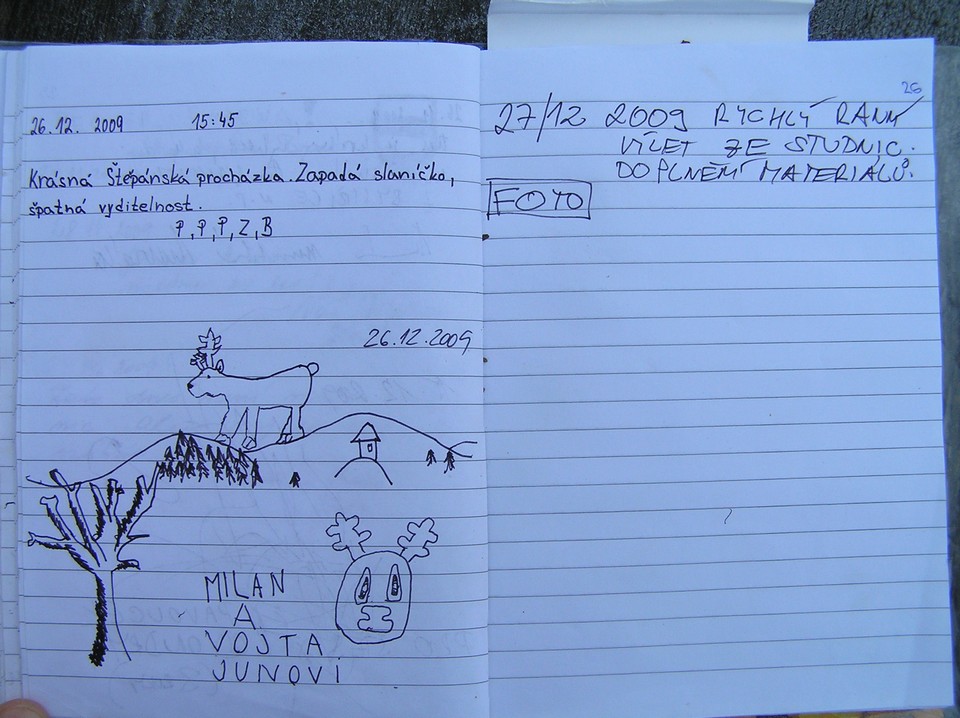 26.12. 2009 15:45
Krásná Štěpánská procházka. Zapadá slaníčko,
špatná vyditelnost.
P, P, P, Z, B
26.12.2009
MILAN
A
VOJTA
JUNOVÍ
26
27/12 2009 RYCHLÝ RANNÝ
VÍLET ZE STUDNIC.
DOPLNĚNÍ MATERIÁLŮ.
FOTO